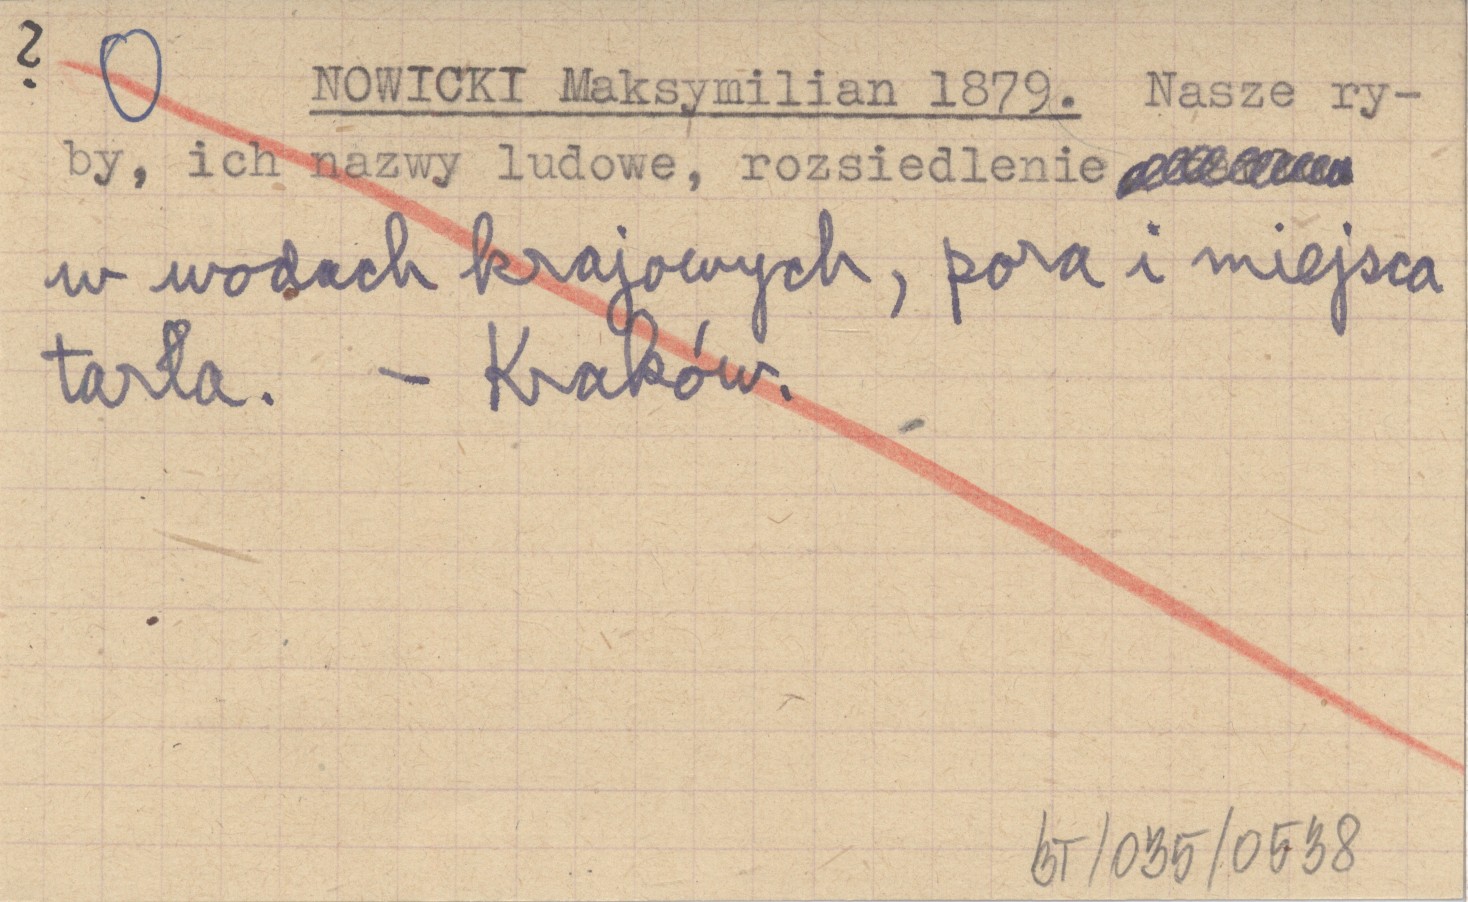 ?
NOWICKI Maksymilian 1879. Nasze ry-
by, ich nazwy ludowe, rozsiedlenie
w wodach krajowych, pora i miejsca
tarła. - Kraków.
BT/035/0538